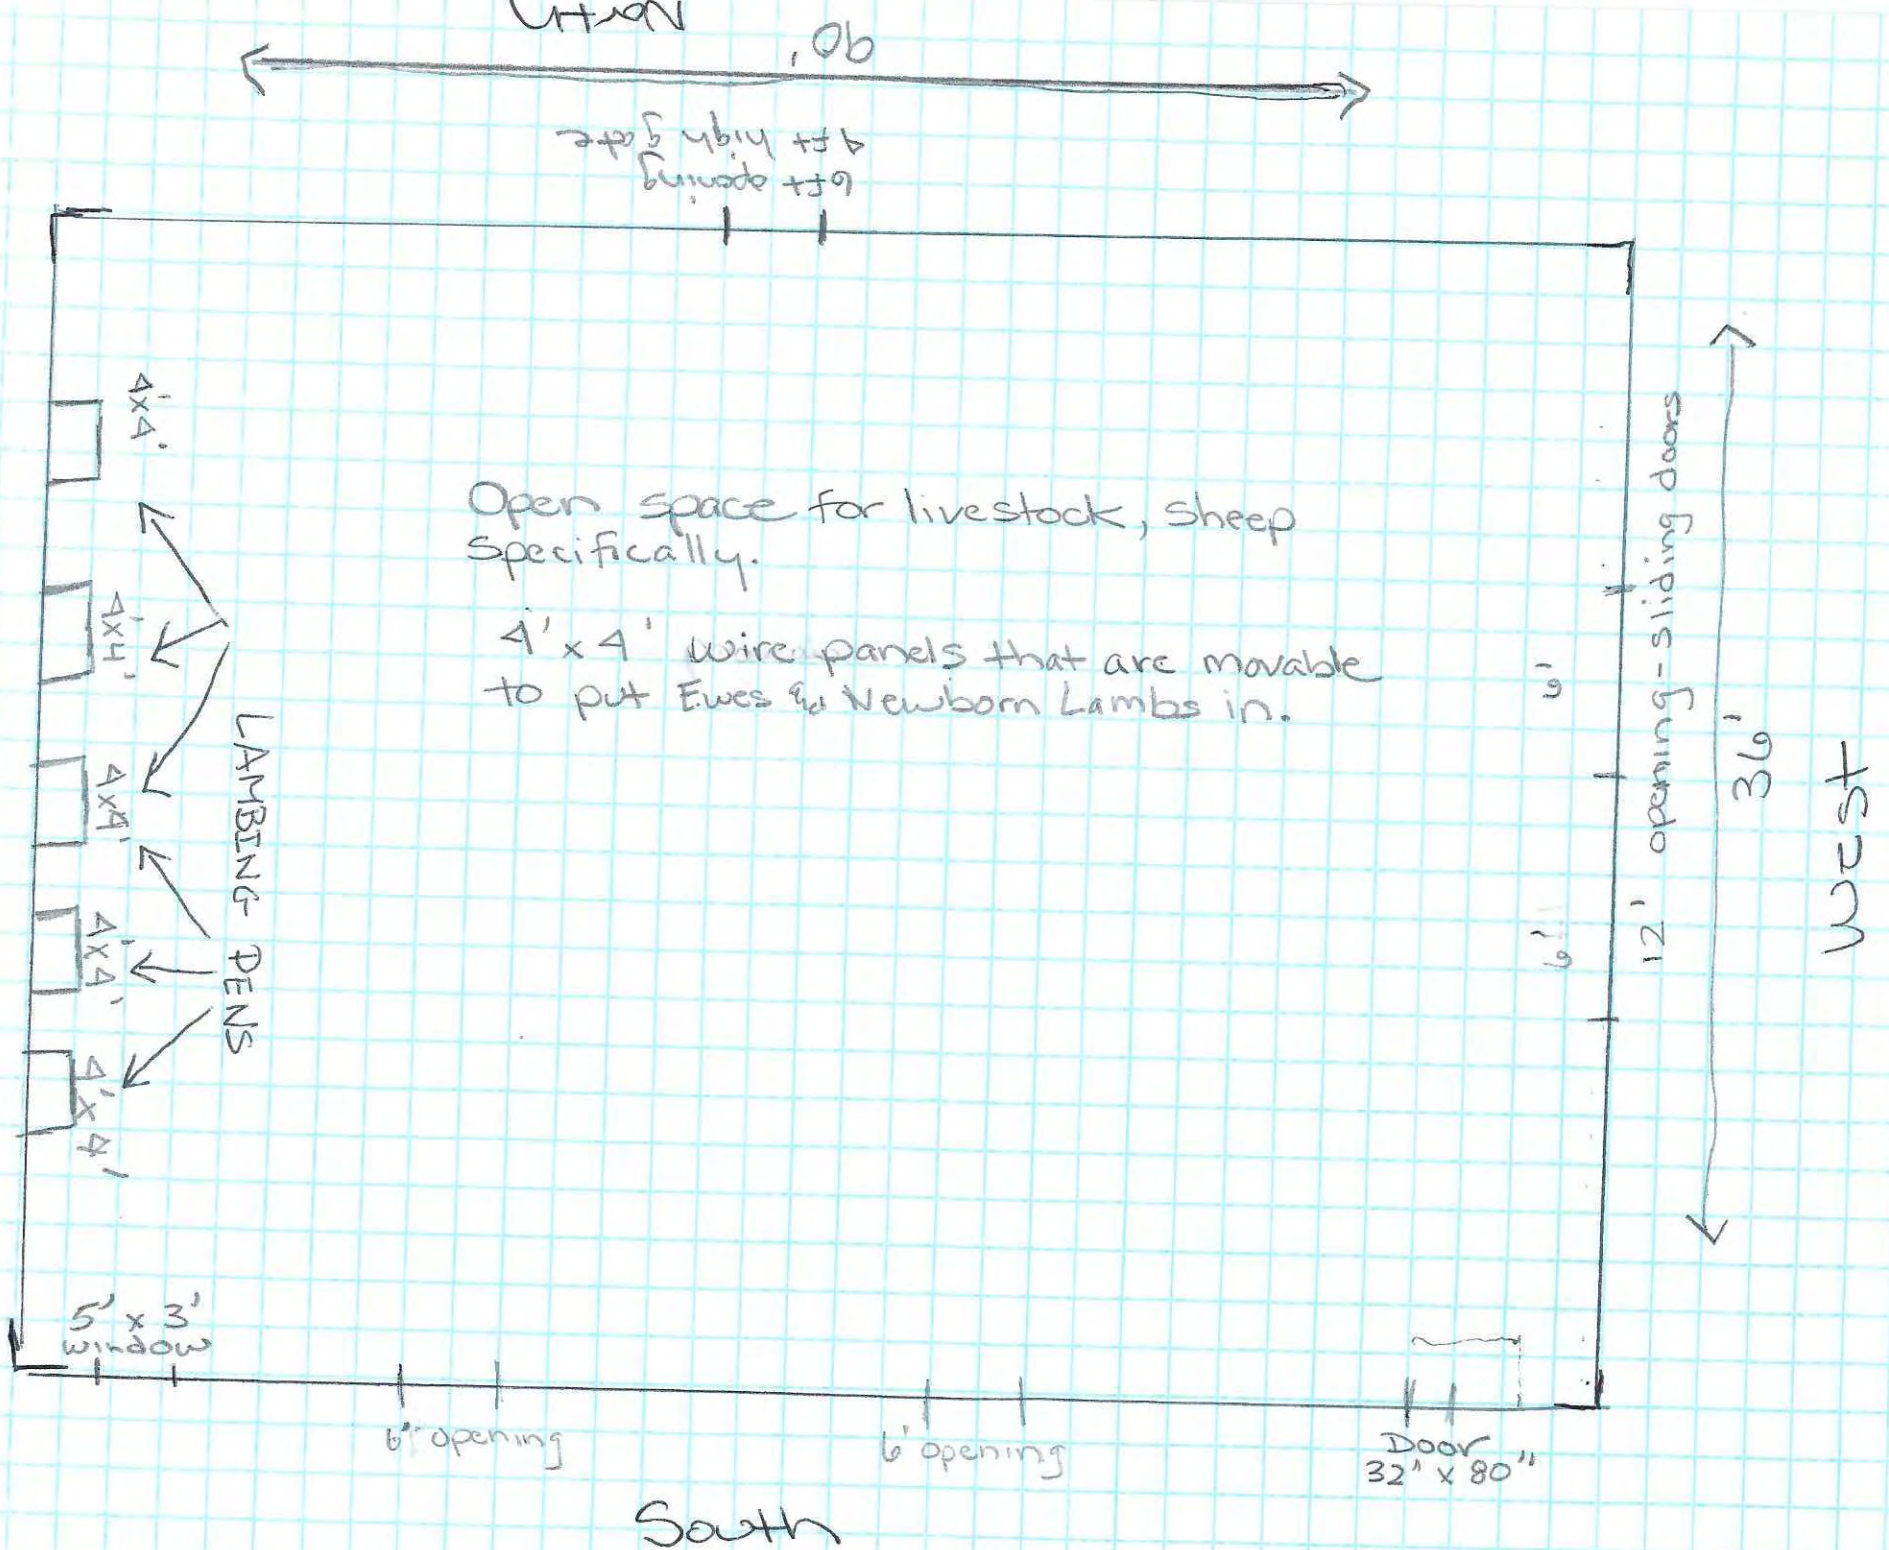 North
90'
6ft opening
4ft high gate
4'x4'
4'x4'
4'x4'
4'x4'
4'x4'
LAMBING PENS
Open space for livestock, sheep
specifically.
4' x 4' wire panels that are movable
to put Ewes & Newborn Lambs in.
6'
6'
12' opening - sliding doors
36'
West
5' x 3'
window
6' opening
6' opening
Door
32" x 80"
South